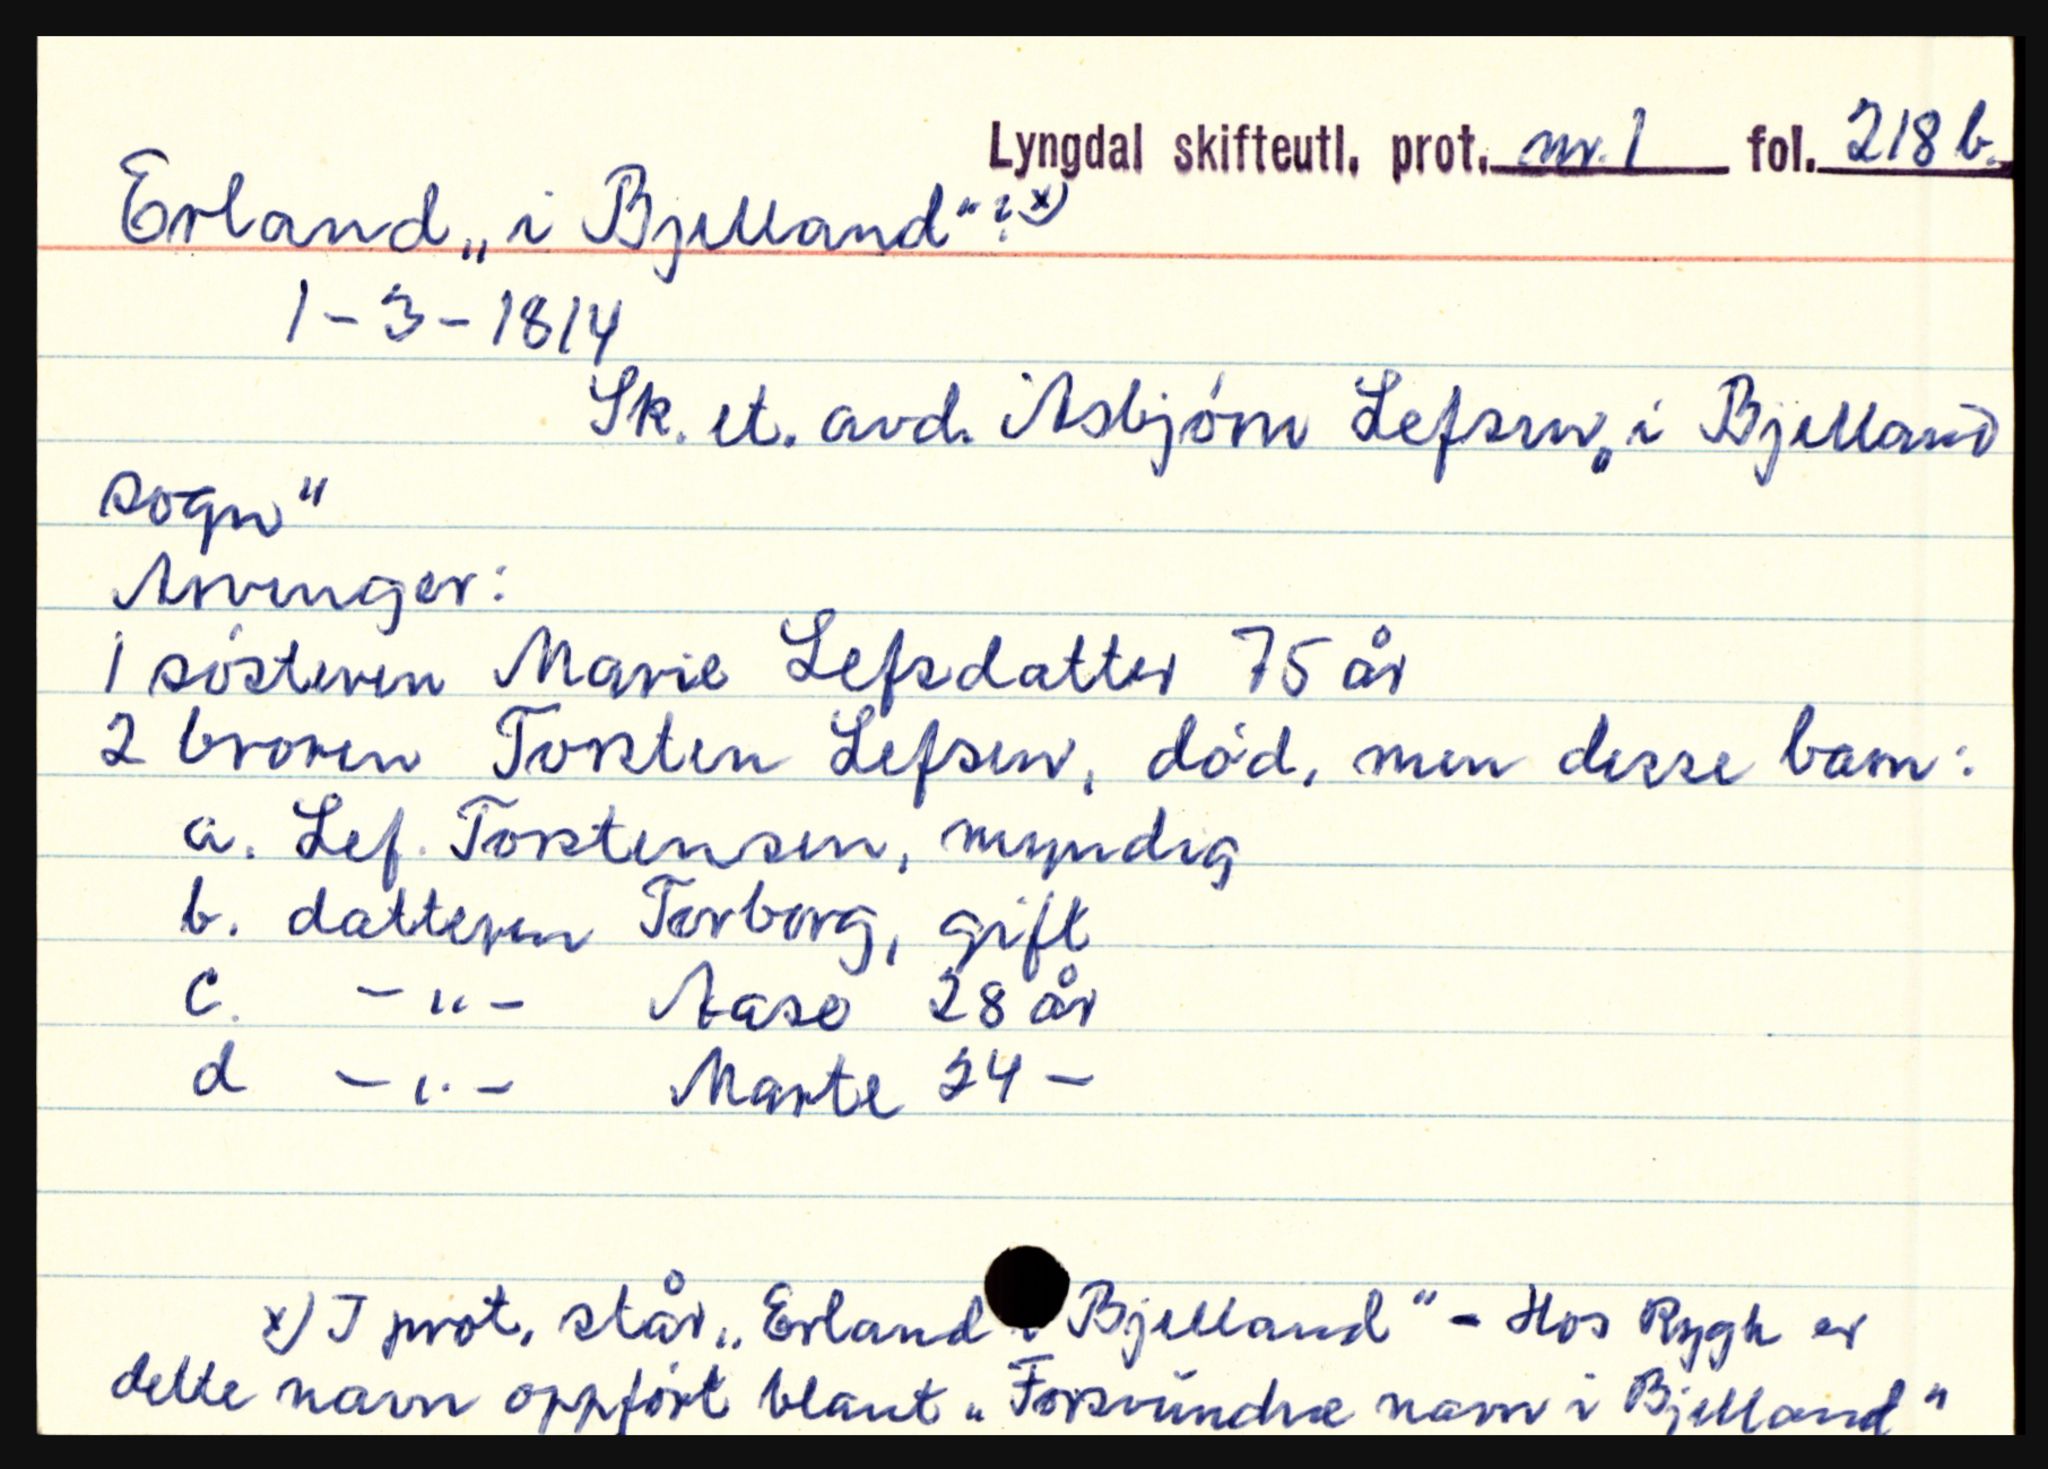 Lyngdal skifteutl. prot. nr. 1 fol. 218 b.
Erland „i Bjelland“? x)
1-3-1814
Sk. et. avd. Asbjørn Lefsen „i Bjelland
sogn“
Arvinger:
1 søsteren Marie Lefsdatter 75 år
2 broren Torsten Lefsen, død, men desse barn:
a. Lef Torstensen, myndig
b. datteren Torborg, gift
c. -„- Aase 28 år
d -„- Marte 24 -
x) I prot. står „Erland i Bjelland“ - Hos Rygh er
dette navn oppført blant „Forsvundne navn i Bjelland“